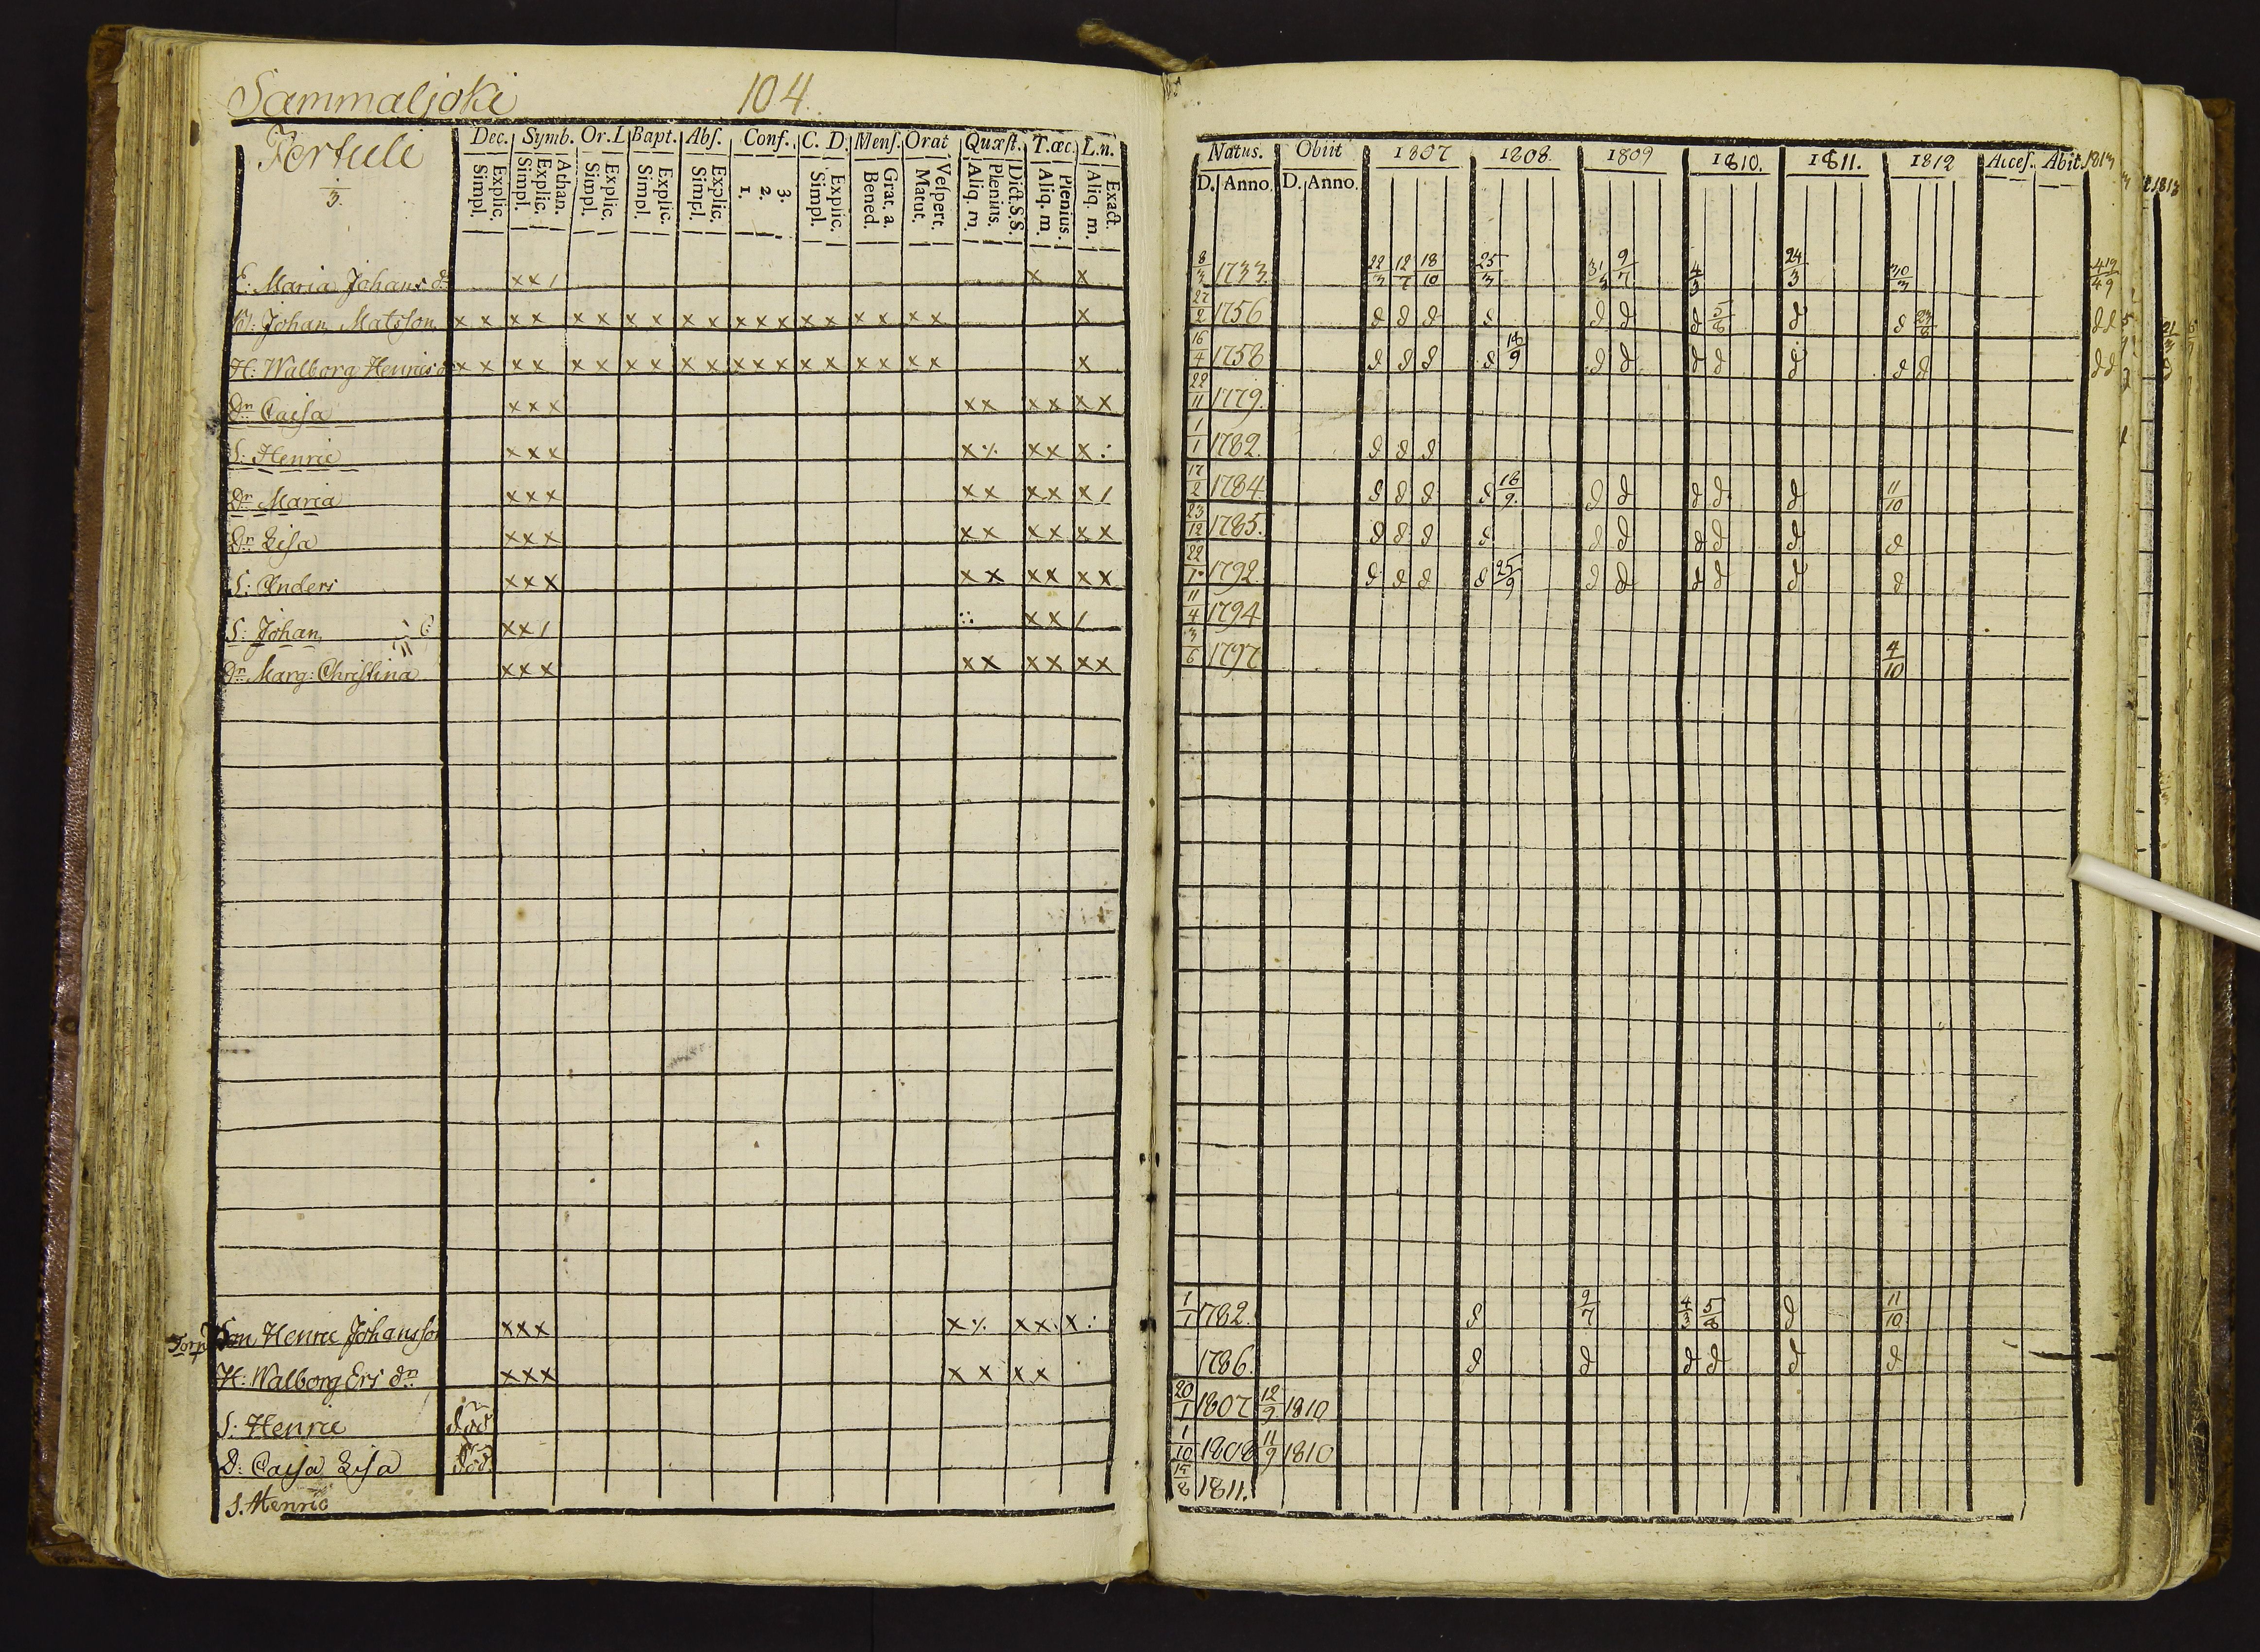 Sammaljoki 104.
Dec. Symb. Or. L. Bapt. Abs. Conf. C. D. Mens. Orat Quæst. T. œc. L. n.
Explic. Simpl. Athan. Explic. Simpl. Explic. Simpl. Explic. Simpl. Explic. Simpl. 3. 2. 1. Explic. Simpl. Grat. a. Bened. Vespert. Matut. Dict. S.S. Plenius. Aliq. m. Plenius. Aliq. m Exact. Aliq. m.
3.
E: Maria Johans dr x x / x x
B: Johan Matsson x x x x x x x x x x x x x x x x x x x
H: Walborg Henrics dr x x x x x x x x x x x x x x x x x x x
Dr Caisa x x x x x x x x x
S: Henric x x x x ٪ x x x :
Dr Maria x x x x x x x x /
Dr Lisa x x x x x x x x x
S: Anders x x x x x x x x x
S: Johan x x / x x /
Dr Marg: Christina x x x x x x x x x
Torp Son Henric Johansson x x x x ٪ x x x :
H: Walborg Ers dr x x x x x x x
S: Henric död
D: Caisa Lisa död
S. Henric
Natus. Obiit 1807 1808 1809 1810. 1811. 1812 Acces. Abit. 1813
D. Anno. D. Anno.
8/3 1733. 22/3 12/7 18/10 25/3 31/3 9/7 4/3 24/3 30/3
27/2 1756 d d d d d d d 5/8 d d 23/8
16/4 1758 d d d d 18/9 d d d d d d d
22/11 1779.
1/1 1782. d d d
17/2 1784 d d d d 18/9. d d d d d 11/10
23/12 1785. d d d d d d d d d d
22/7 1792 d d d d 25/9 d d d d d d
11/4 1794
3/6 1797 4/10
1/1 1782. d 9/7 4/3 5/8 d 11/10
1786. d d d d d d
20/1 1807 12/9 1810
1/10 1808 11/9 1810
15/8 1811.